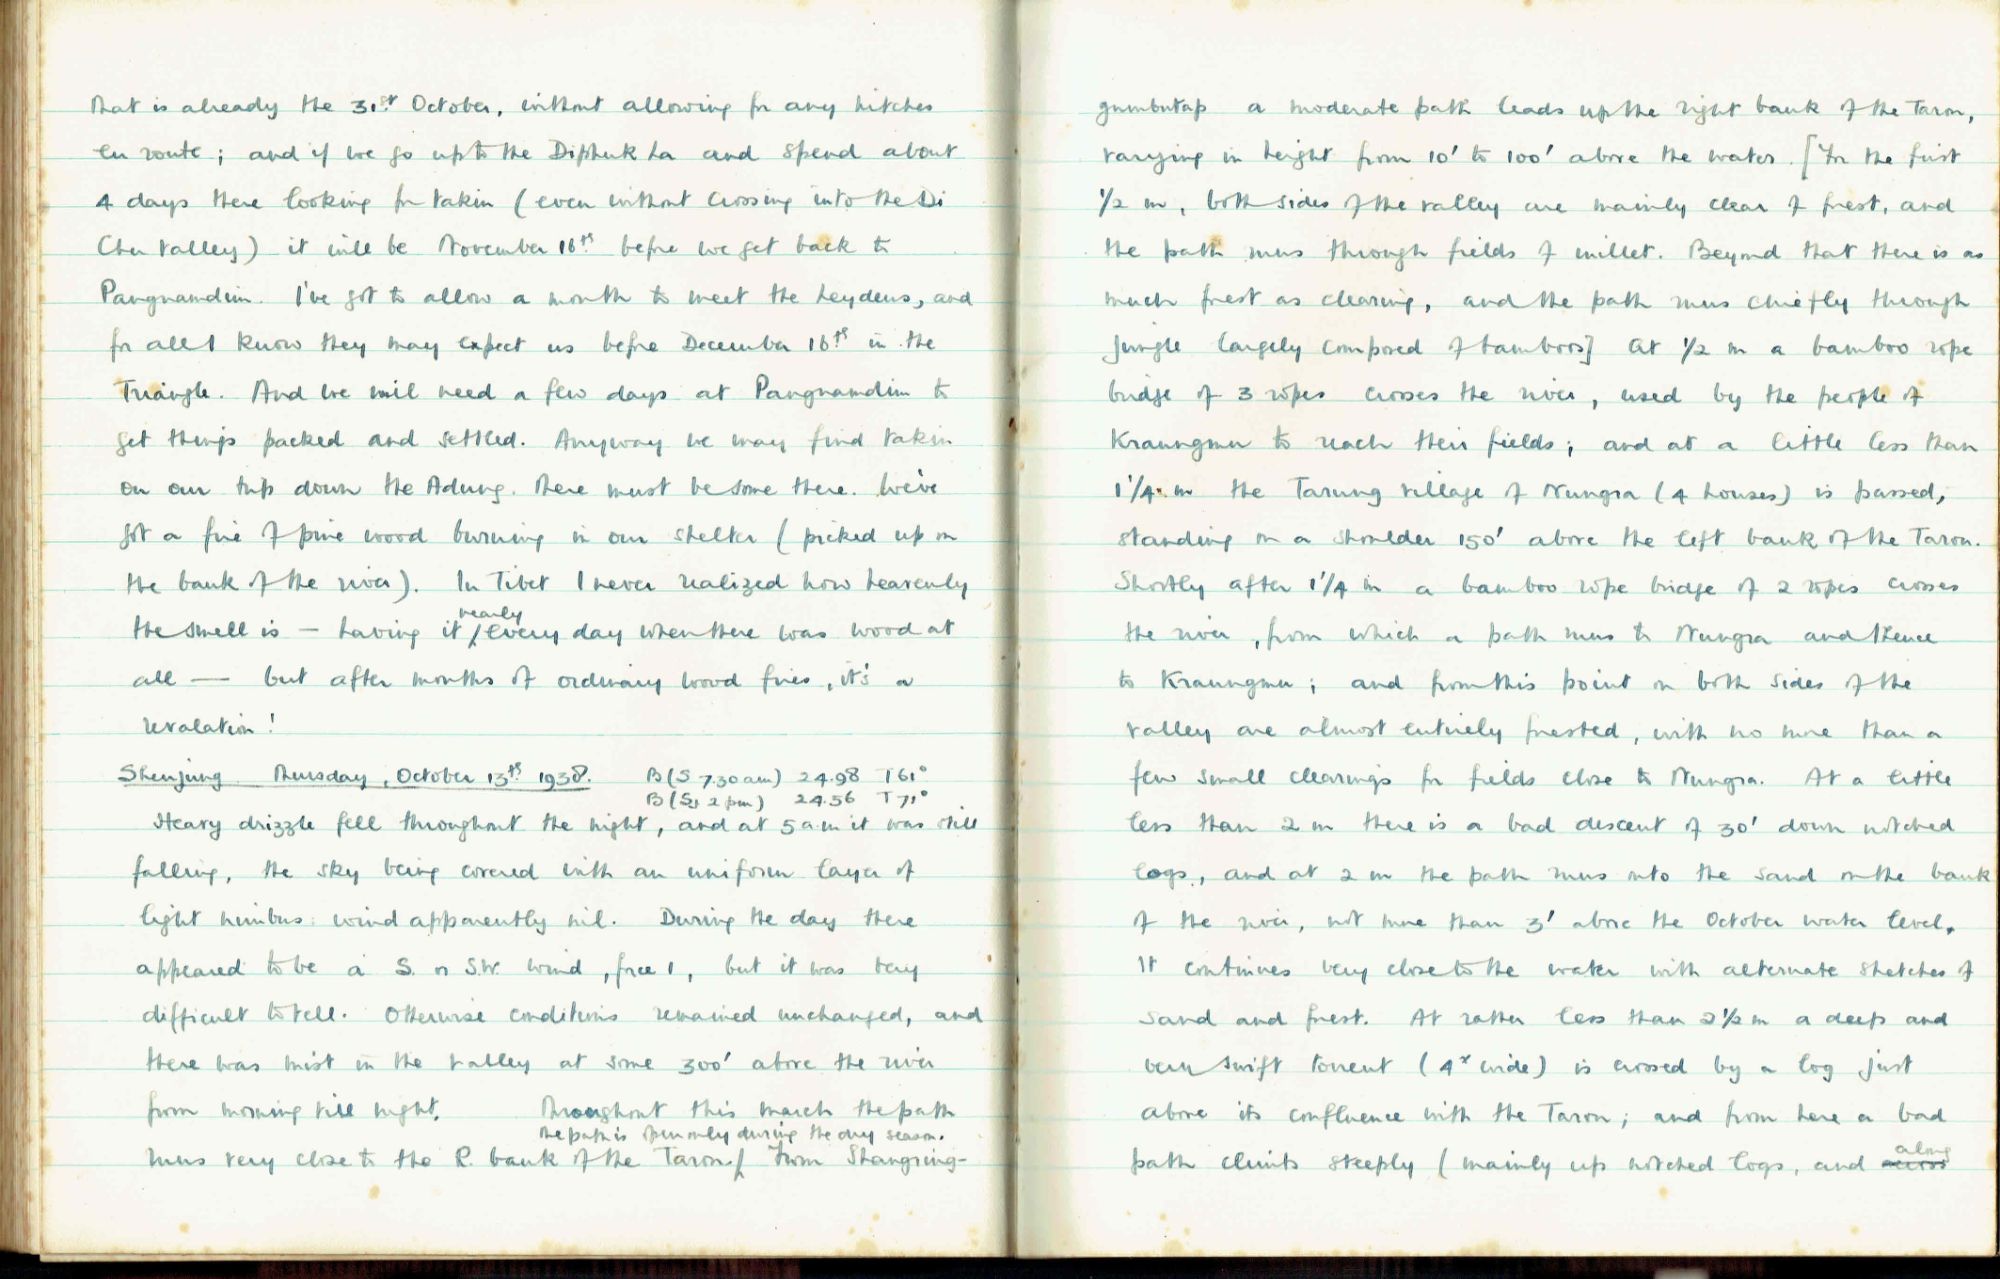 that is already the 31st October, without allowing for any hitches
en route; and if we go up to the Diphuk La and spend about
4 days there looking for takin (even without crossing into the Di
Chu valley) it will be November 16th before we get back to
Pangnamdim. I've got to allow a month to meet the Leydens, and
for all I know they may expect us before December 16th in the
Triangle. And we will need a few days at Pangnamdim to
get things packed and settled. Anyway we may find takin
on our trip down the Adung. There must be some there. We've
got a fire of pine wood burning in our shelter (picked up on
the bank of the river). In Tibet I never realized how heavenly
the smell is – having it nearly every day when there was wood at
all — but after months of ordinary wood fires, it's a
revalation!
Shenjung Thursday, October 13th 1938. B (S 7.30 am) 24.98 T 61°
B (S, 2 pm) 24.56 T 71°
Heavy drizzle fell throughout the night, and at 5 am it was still
falling, the sky being covered with an uniform layer of
light nimbus: wind apparently nil. During the day there
appeared to be a S. or S.W. wind, force 1, but it was very
difficult to tell. Otherwise conditions remained unchanged, and
there was mist in the valley at some 300' above the river
from morning till night. Throughout this march the path
the path is open only during the dry season.
runs very close to the R. bank of the Taron/ From Shangring-
gumbutap a moderate path leads up the right bank of the Taron,
varying in height from 10' to 100' above the water. [For the first
1/2 m, both sides of the valley are mainly clear of forest, and
the path runs through fields of millet. Beyond that there is as
much forest as clearing, and the path runs chiefly through
jungle largely composed of bamboos] At 1/2 m a bamboo rope
bridge of 3 ropes crosses the river, used by the people of
Kraungmu to reach their fields; and at a little less than
1 1/4 m the Tarung village of Nungra (4 houses) is passed,
standing on a shoulder 150' above the left bank of the Taron.
Shortly after 1 1/4 m a bamboo rope bridge of 2 ropes crosses
the river, from which a path runs to Nungra and thence
to Kraungmu; and from this point on both sides of the
valley are almost entirely forested, with no more than a
few small clearings for fields close to Nungra. At a little
less than 2 m there is a bad descent of 30' down notched
logs, and at 2 m the path runs onto the sand on the bank
of the river, not more than 3' above the October water level.
It continues very close to the water with alternate stretches of
sand and forest. At rather less than 2 1/2 m a deep and
very swift torrent (4x wide) is crossed by a log just
above its confluence with the Taron; and from here a bad
path climbs steeply (mainly up notched logs, and across along